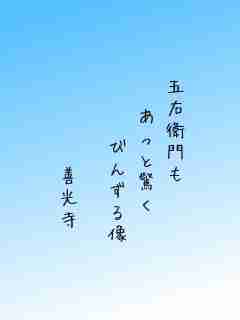 五右衛門も
あっと驚く
びんずる像
善光寺